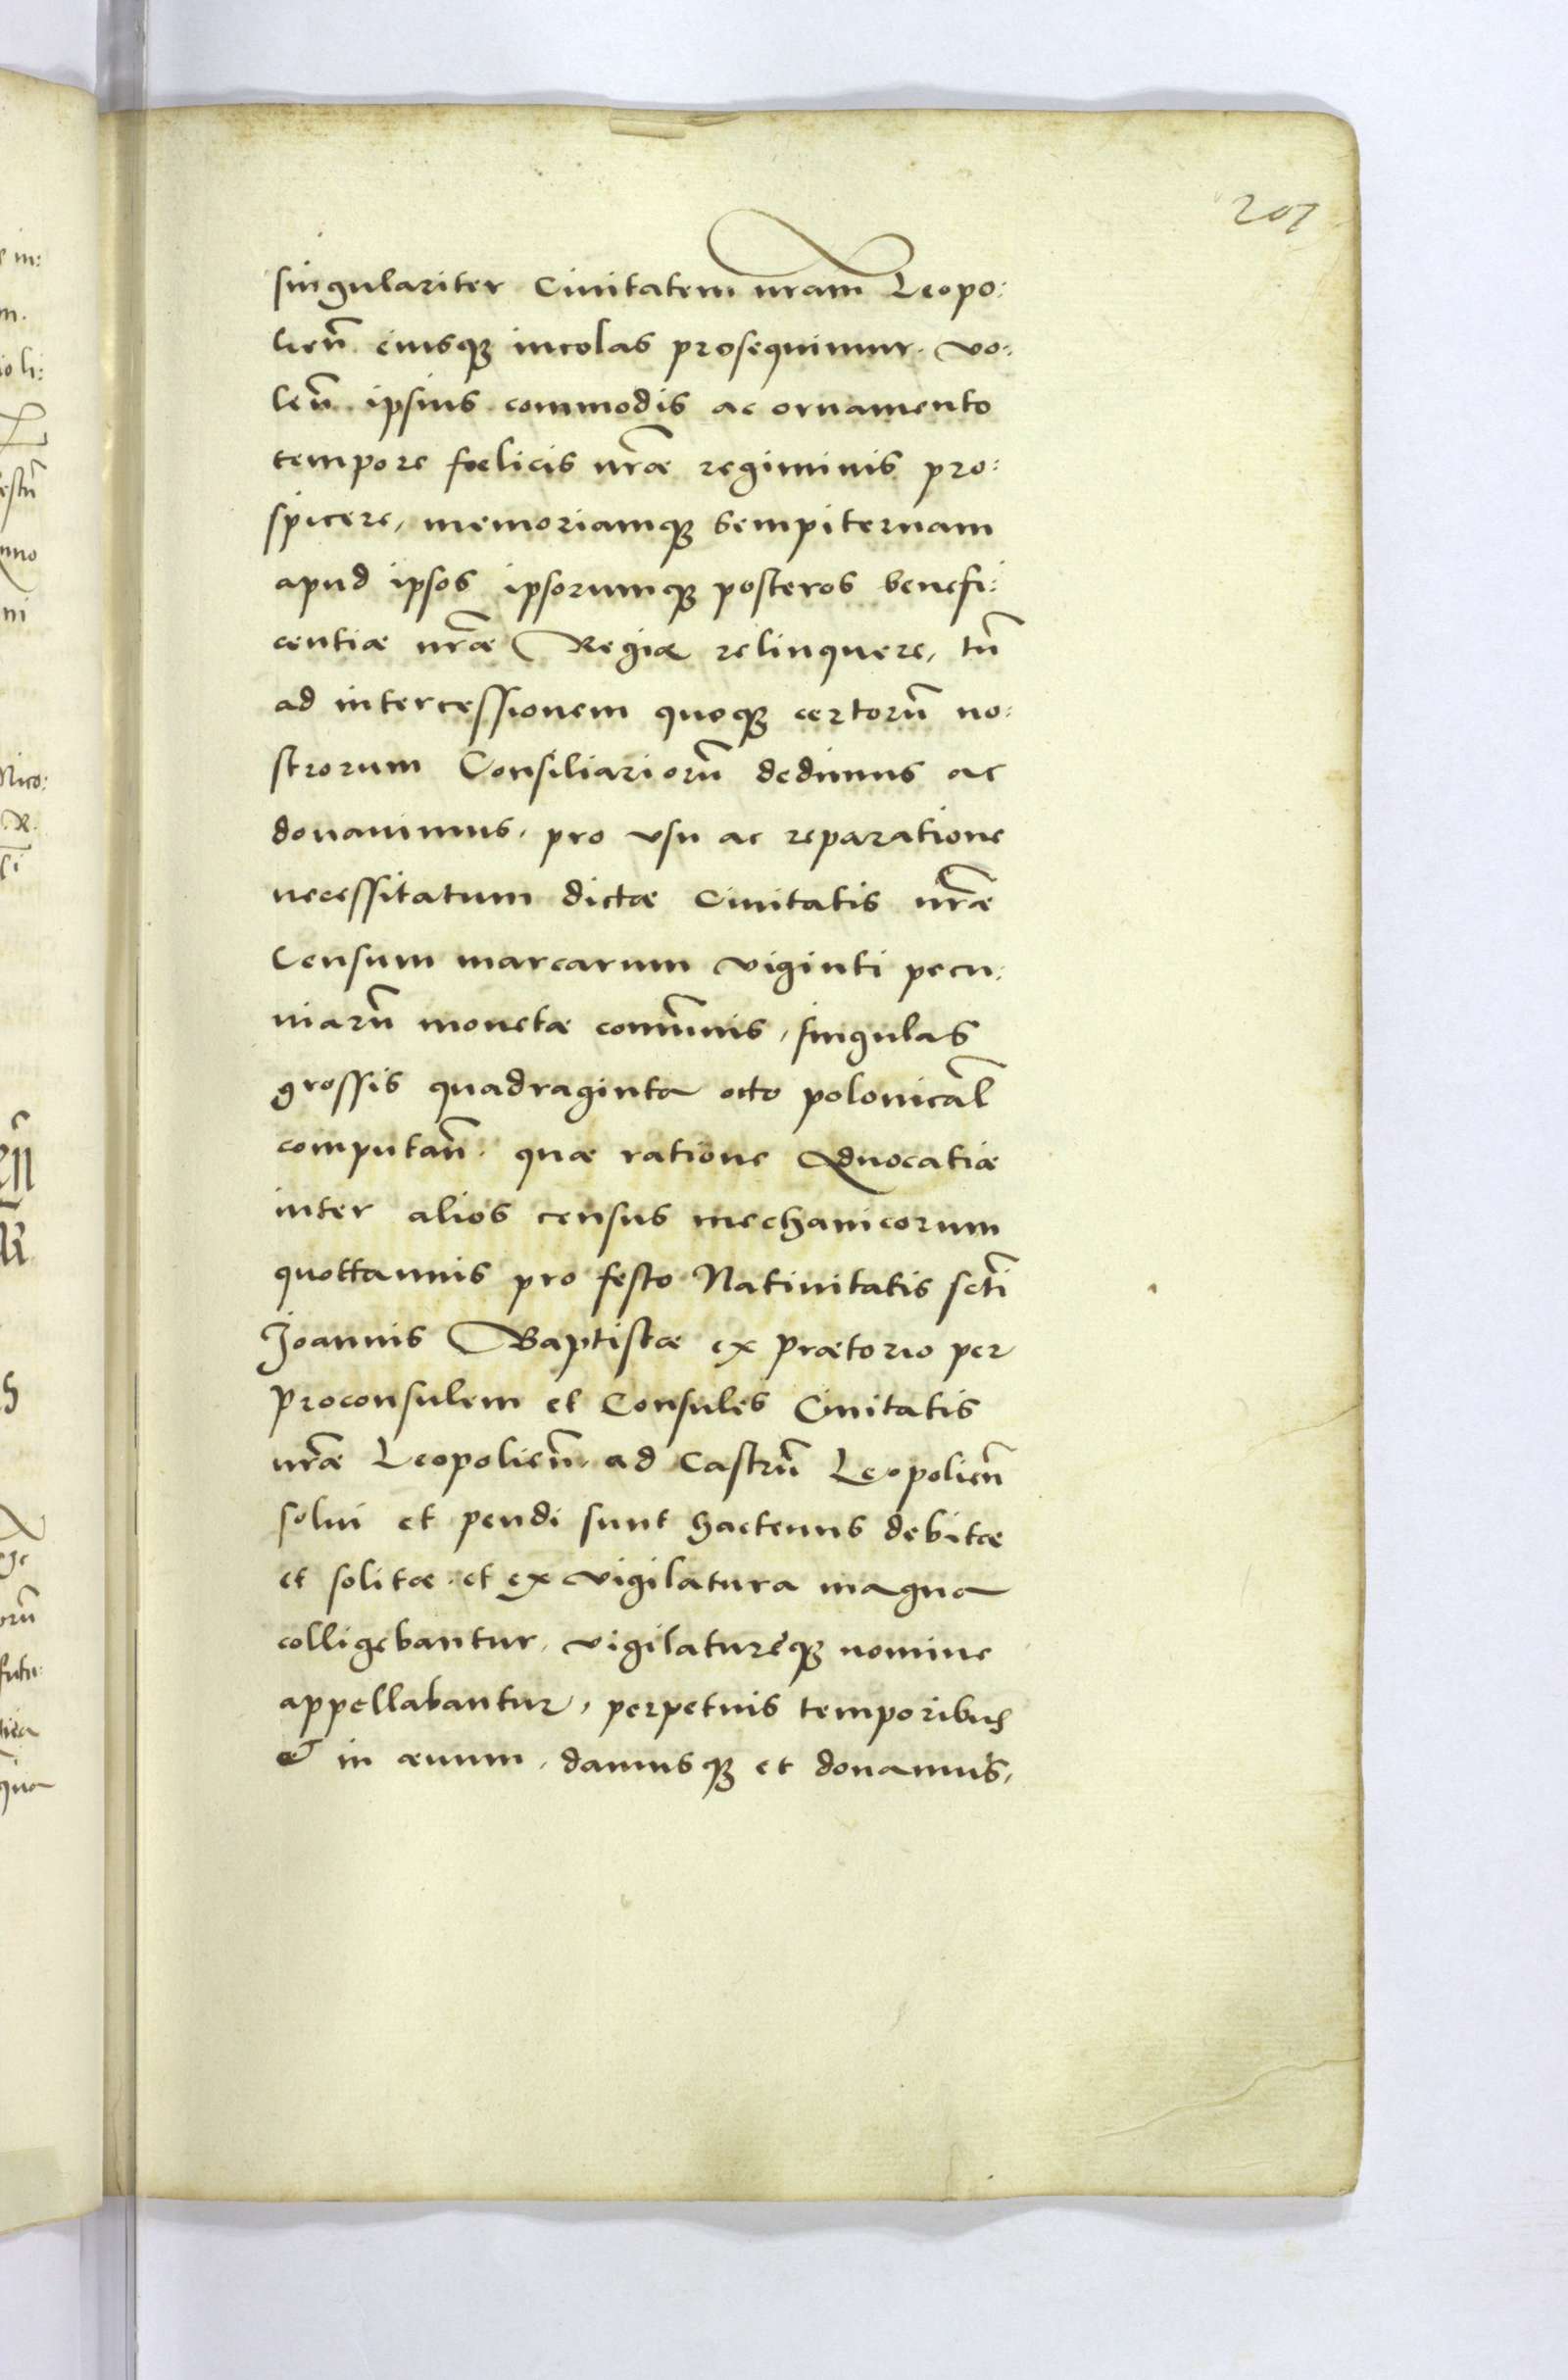 201
singulariter Ciuitatem nr̃am Leopo:
lieñ eiusq₃ incolas prosequimur. vo:
leñ ipsius commodis ac ornamento
tempore foelicis nr̃æ regiminis pro:
spicere, memoriamq₃ sempiternam
apud ipsos ipsorumq₃ posteros benefi:
centiæ nr̃æ Regiæ relinquere, tũ
ad intercessionem quoq₃ certorũ no:
strorum Consiliariorũ dedimus ac
donauimus, pro vsu ac reparatione
necessitatum dictæ Ciuitatis nr̃æ
Censum marcarum viginti pecu:
niarũ monetæ com̃unis, singulas
grossis quadraginta octo polonical̃
computañ. quæ ratione Aduocatiæ
inter alios census mechanicorum
quottannis pro festo Natiuitatis scti̇̃
Joannis Baptistæ ex prætorio per
proconsulem et Consules Ciuitatis
nr̃æ Leopolieñ. ad Castrũ Leopolieñ
solui et pendi sunt hactenus debitæ
et solitæ. et ex vigilatura magna
colligebantur, vigilaturęq₃ nomine
appellabantur, perpetuis temporibus
& in æuum, damusq₃ et donamus,